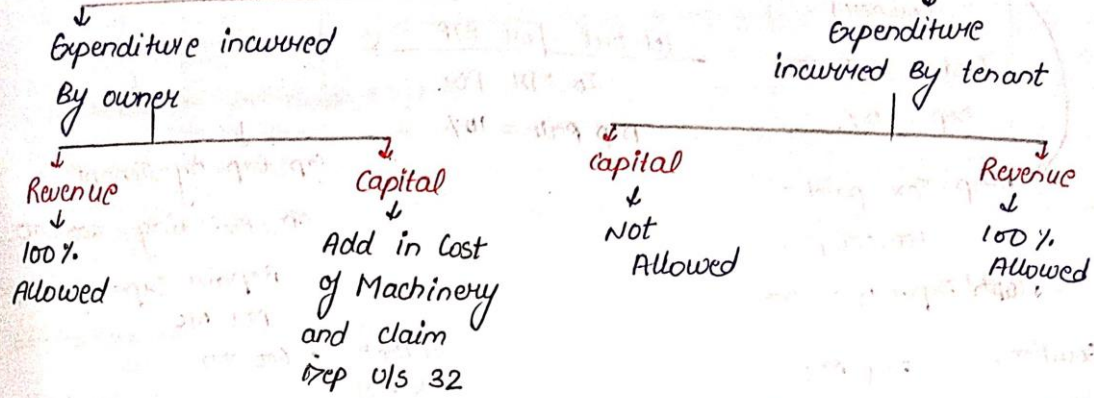 Expenditure incurred
By owner
Revenue
↓
100 %
Allowed
Capital
↓
Add in Cost
of Machinery
and claim
Dep U/S 32
Expenditure
incurred By tenant
Capital
↓
Not
Allowed
Revenue
↓
100 %.
Allowed